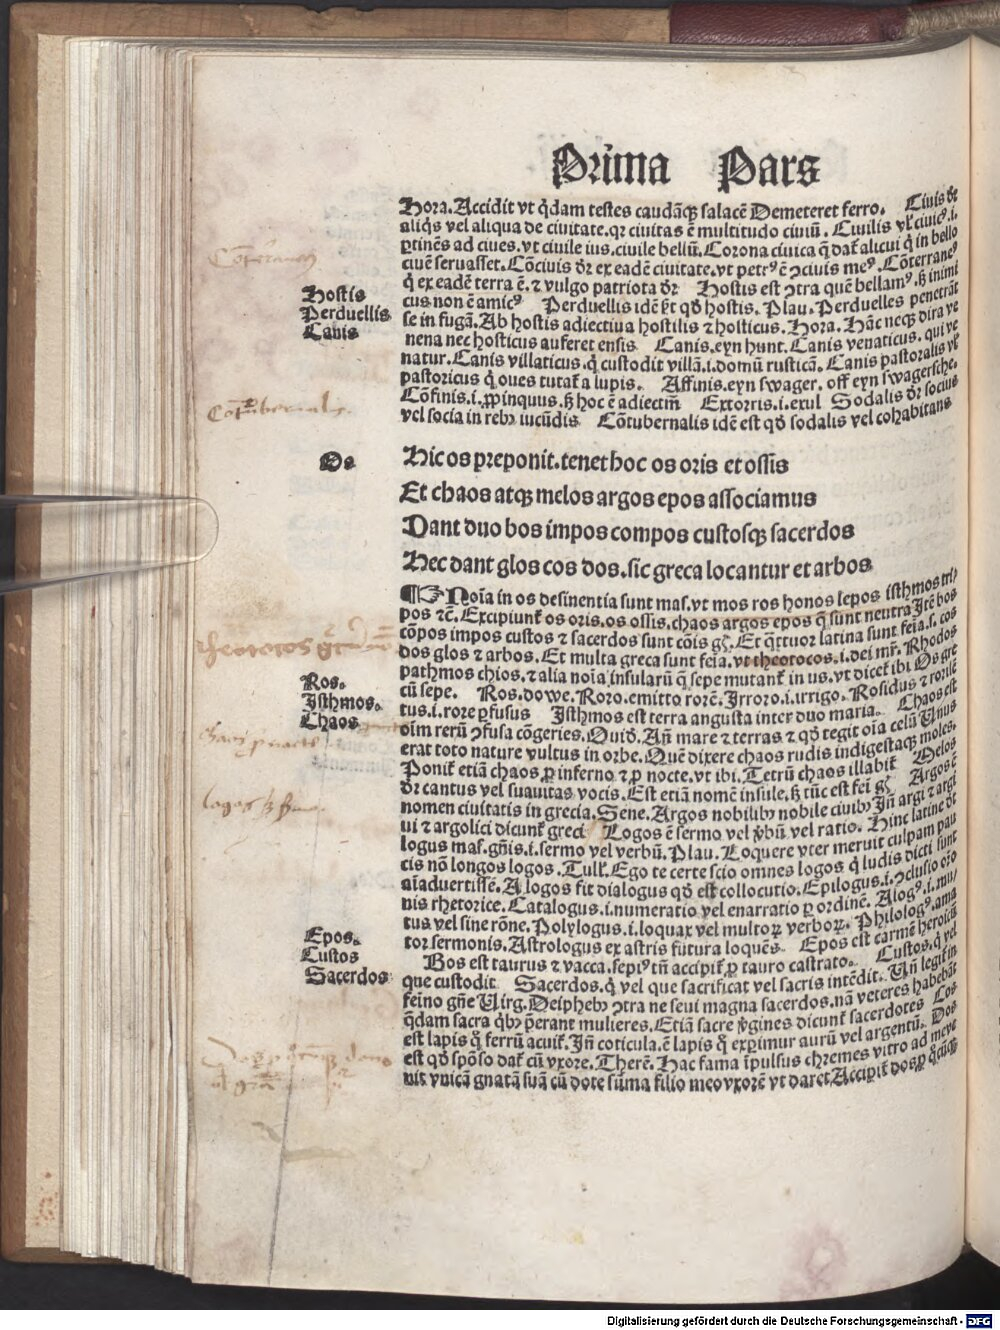 Prima Pars
Hora. Accidit vt q̄dam testes caudāq; salacē Demeteret ferro. Ciuis de
aliq̄s vel aliqua de ciuitate. qr ciuitas ē multitudo ciuiū. Ciuilis vl' ciuicꝰ .i.
ꝑtinēs ad ciues. vt ciuile ius. ciuile bellū. Corona ciuica q̄ dat̄ alicui q̄ in bello
ciuē seruasset. Cōciuis dr̄ ex eadē ciuitate. vt petrꝰ ē ꝯciuis meꝰ. Cōterraneꝰ
q̄ ex eadē terra ē. ⁊ vulgo patriota dr̄ Hostis est ꝯtra quē bellamꝰ. ß inimi
cus non ē amicꝰ Perduellis idē ē qd' hostis. Plau. Perduelles penetrāt
se in fugā. Ab hostis adiectiua hostilis ⁊ hosticus. Hora. Hāc neq; dira ve
nena nec hosticus auferet ensis Canis. eyn hunt. Canis venaticus. qui ve
natur. Canis villaticus. q̄ custodit villā .i. domū rusticā. Canis pastoralis vl'
pastoricus q̄ oues tutat̄ a lupis. Affinis. eyn swager. off eyn swagersche.
Cōfinis .i. ꝓpinquus. ß hoc ē adiectm̄ Extorris .i. exul Sodalis dr̄ socius
vel socia in rebꝫ iucūdis Cōtubernalis idē est qd' sodalis vel cohabitans
Hostis
Perduellis
Canis
Os
Hic os preponit. tenet hoc os oris et ossis
Et chaos atq; melos argos epos associamus
Dant duo bos impos compos custosq; sacerdos
Hec dant glos cos dos. sic greca locantur et arbos
¶ Noīa in os desinentia sunt mas. vt mos ros honos lepos isthmos tri
pos ⁊c̄. Excipiunt̄ os oris. os ossis. chaos argos epos q̄ sunt neutra Itē bos
cōpos impos custos ⁊ sacerdos sunt cōis gn̄. Et q̄ttuor latina sunt feīa .s. cos
dos glos ⁊ arbos. Et multa greca sunt feīa. vt theotocos .i. dei mr̄. Rhodos
pathmos chios. ⁊ alia noīa insularū q̄ sepe mutant̄ in us. vt dicet̄ ibi Os gre
cū sepe. Ros. dowe. Roro. emitto rorē. Irroro .i. irrigo. Rosidus ⁊ rorilē
tus .i. rore ꝑfusus Isthmos est terra angusta inter duo maria. Chaos est
oīm rerū ꝯfusa cōgeries. Ouid. Añ mare ⁊ terras ⁊ qd' tegit oīa celū Unus
erat toto nature vultus in orbe. Quē dixere chaos rudis indigestaq; moles.
Ponit̄ etiā chaos ꝓ inferno ⁊ ꝓ nocte. vt ibi. Tetrū chaos illabit̄ Melos
dr̄ cantus vel suauitas vocis. Est etiā nomē insule. ß tūc est feī gn̄ Argos ē
nomen ciuitatis in grecia. Sene. Argos nobilibꝫ nobile ciuibꝫ Iñ argi ⁊ argi
ui ⁊ argolici dicunt̄ greci Logos ē sermo vel v̄bū vel ratio. Hinc latine dr̄
logus mas. gn̄is .i. sermo vel verbū. Plau. Loquere vter meruit culpam pau
cis nō longos logos. Tull'. Ego te certe scio omnes logos q̄ ludis dicti sunt
aīaduertissē. A logos fit dialogus qd' est collocutio. Epilogus .i. ꝯclusio orō
nis rhetorice. Catalogus .i. numeratio vel enarratio ꝑ ordinē. Alogꝰ .i. mu
tus vel sine rōne. Polylogus .i. loquax vel multoꝝ verboꝝ. Philologꝰ. ama
tor sermonis. Astrologus ex astris futura loquēs Epos est carmē heroicū
Bos est taurus ⁊ vacca. sepiꝰ tn̄ accipit̄ ꝓ tauro castrato. Custos. q̄ vel
que custodit Sacerdos. q̄ vel que sacrificat vel sacris intēdit. Uñ legit̄ in
feīno gn̄e Uirg. Deiphebꝫ ꝯtra ne seui magna sacerdos. nā veteres habebāt
q̄dam sacra q̄bꝫ p̄erant mulieres. Etiā sacre v̄gines dicunt̄ sacerdotes Cos
est lapis q̄ ferrū acuit̄. Iñ coticula. ē lapis q̄ exprimur aurū vel argentū. Dos
est qd' spōso dat̄ cū vxore. Therē. Hac fama īpulsus chremes vltro ad me ve
nit vnicā gnatā suā cū dote sūma filio meo vxorē vt daret. Accipit̄ dos ꝓ q̄cūq;
Ros.
Isthmos.
Chaos
Epos.
Custos
Sacerdos
Digitalisierung gefördert durch die Deutsche Forschungsgemeinschaft - DFG